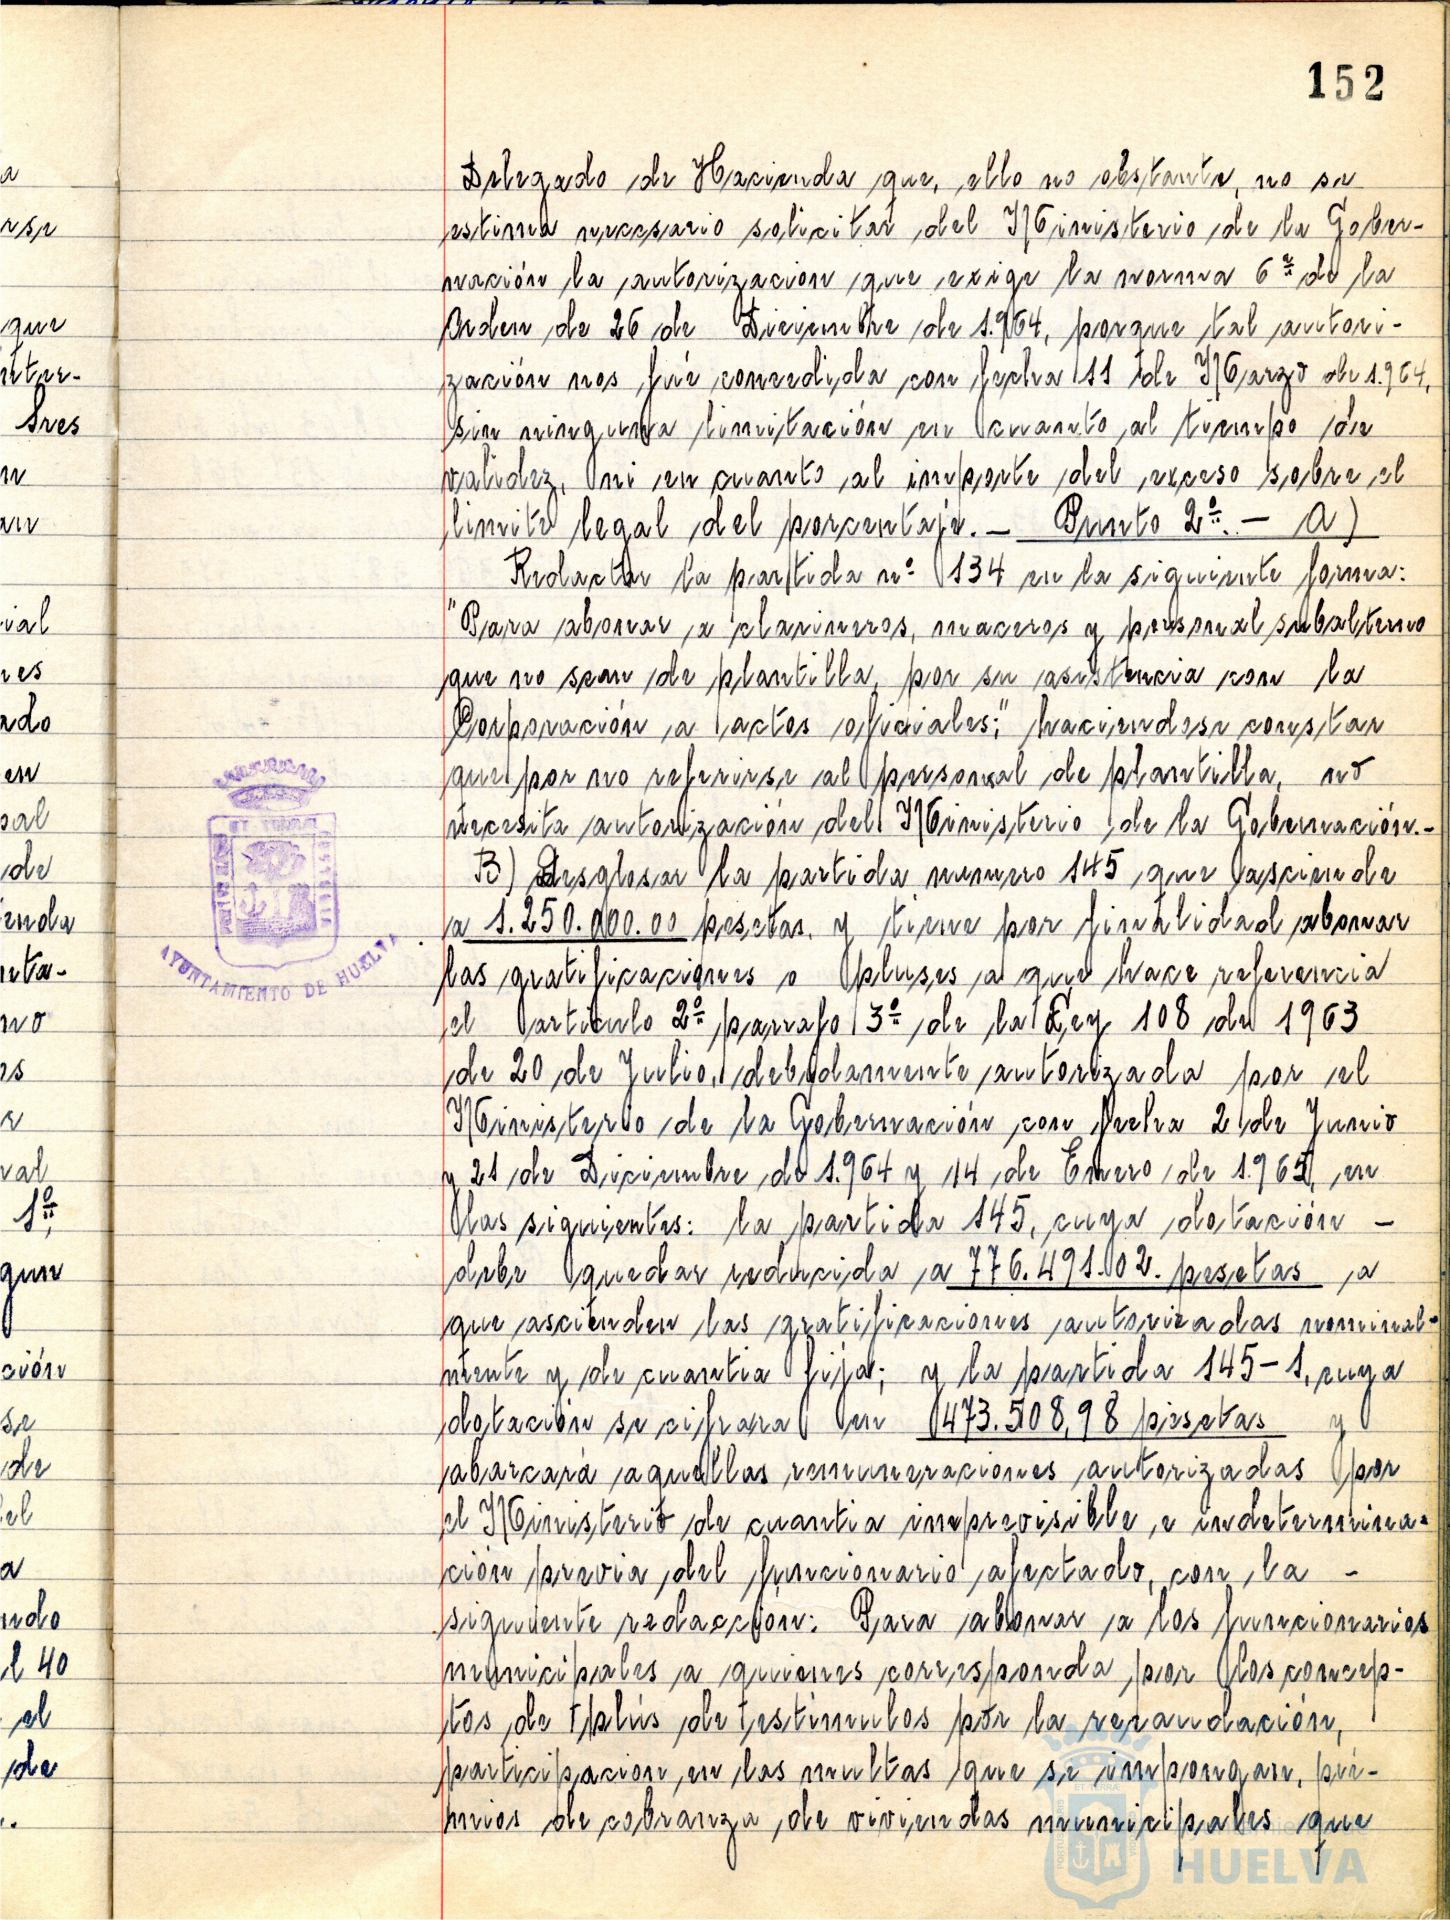 152
Delegado de Hacienda que, ello no obstante, no se
estima necesario solicitar del Ministerio de la Gober-
nación la autorización que exige la norma 6ª de la
Orden de 26 de Diciembre de 1.964, porque tal autori-
zación nos fué concedida con fecha 11 de Marzo de 1.964,
sin ninguna limitación en cuanto al tiempo de
validez, ni en cuanto al importe del exceso sobre el
limite legal del porcentaje. — Punto 2º. — A)
Redactar la partida nº 134 en la siguiente forma:
"Para abonar a clarineros, maceros y personal subalterno
que no sean de plantilla, por su asistencia con la
Corporación a actos oficiales;" haciendose constar
que por no referirse al personal de plantilla, no
necesita autorización del Ministerio de la Gobernación.-
B) Desglosar la partida numero 145 que asciende
a 1.250.000.00 pesetas, y tiene por finalidad abonar
las gratificaciones o pluses a que hace referencia
el articulo 2º parrafo 3º de la Ley 108 de 1963
de 20 de Julio, debidamente autorizada por el
Ministerio de la Gobernación con fecha 2 de Junio
y 21 de Diciembre de 1.964 y 14 de Enero de 1.965, en
las siguientes: la partida 145, cuya dotación -
debe quedar reducida a 776.491.02. pesetas a
que ascienden las gratificaciones autorizadas nominal-
mente y de cuantia fija; y la partida 145-1, cuya
dotación se cifrara en 473.508,98 pesetas y
abarcará aquellas remuneraciones autorizadas por
el Ministerio de cuantia imprevisible, e indetermina-
ción previa del funcionario afectado, con la -
siguiente redacción: Para abonar a los funcionarios
municipales a quienes corresponda por los concep-
tos de plús de estímulos por la recaudación,
participacion en las multas que se impongan, pre-
mios de cobranza de viviendas municipales que
AYUNTAMIENTO DE HUELVA
HUELVA
a
rse
que
nter-
tres
an
ial
nes
ado
en
pal
de
ienda
nta-
mo
es
r
val
1º,
ción
se
de
el
a
ndo
l 40
el
de